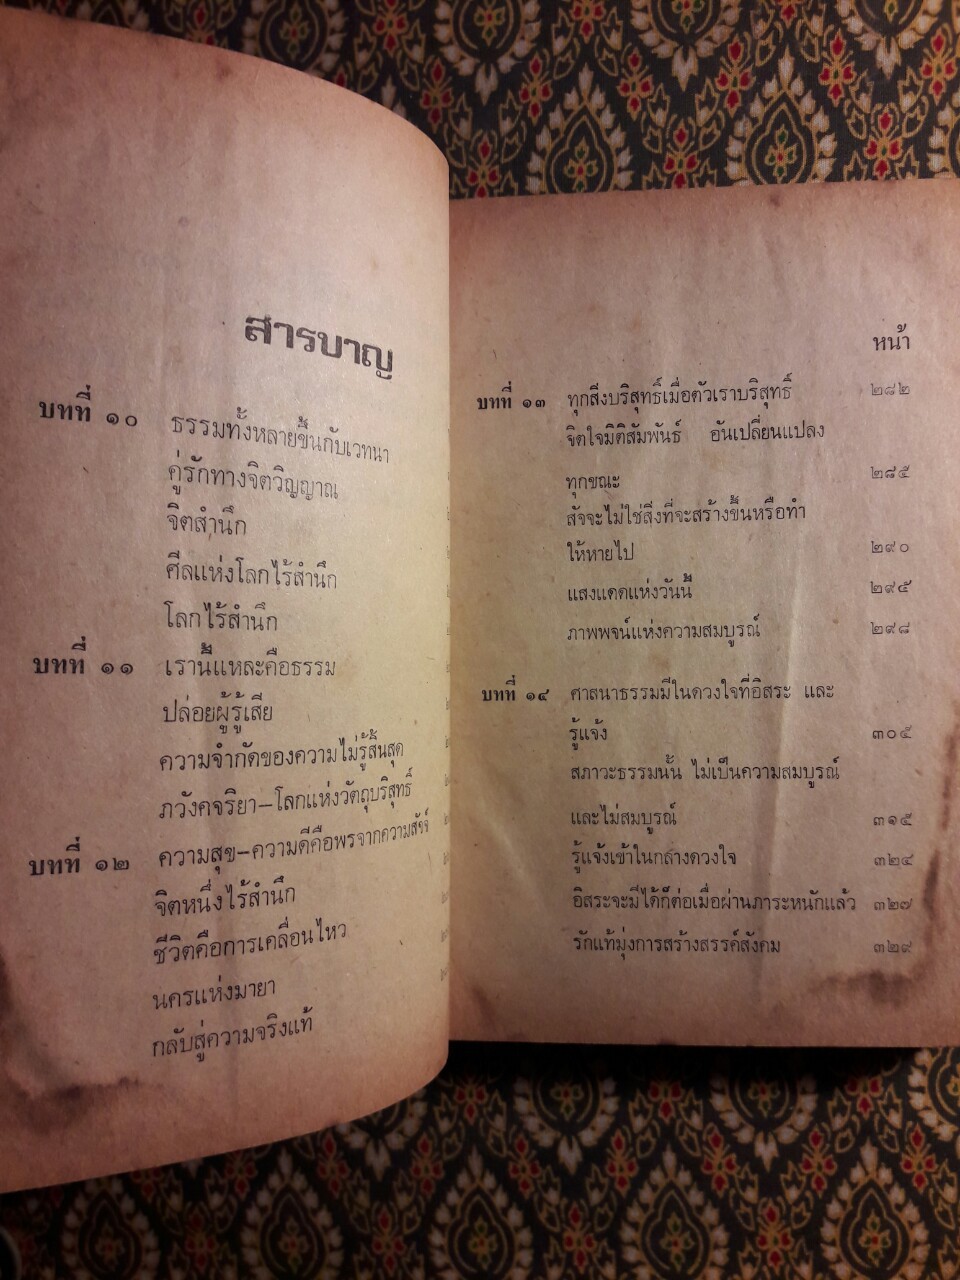 สารบาญ
บทที่ ๑๐ ธรรมทั้งหลายขึ้นกับเวทนา
คู่รักทางจิตวิญญาณ
จิตสำนึก
ศีลแห่งโลกไร้สำนึก
โลกไร้สำนึก
บทที่ ๑๑ เรานี้แหละคือธรรม
ปล่อยผู้รู้เสีย
ความจำกัดของความไม่รู้สิ้นสุด
ภวังคจริยา–โลกแห่งวัตถุบริสุทธิ์
บทที่ ๑๒ ความสุข–ความดีคือพรจากความสัจจ์
จิตหนึ่งไร้สำนึก
ชีวิตคือการเคลื่อนไหว
นครแห่งมายา
กลับสู่ความจริงแท้
หน้า
บทที่ ๑๓ ทุกสิ่งบริสุทธิ์เมื่อตัวเราบริสุทธิ์ ๒๘๒
จิตใจมิติสัมพันธ์ อันเปลี่ยนแปลง
ทุกขณะ ๒๘๕
สัจจะไม่ใช่สิ่งที่จะสร้างขึ้นหรือทำ
ให้หายไป ๒๙๐
แสงแดดแห่งวันนี้ ๒๙๕
ภาพพจน์แห่งความสมบูรณ์ ๒๙๘
บทที่ ๑๔ ศาสนาธรรมมีในดวงใจที่อิสระ และ
รู้แจ้ง ๓๐๕
สภาวะธรรมนั้น ไม่เป็นความสมบูรณ์
และไม่สมบูรณ์ ๓๑๕
รู้แจ้งเข้าในกลางดวงใจ ๓๒๔
อิสระจะมีได้ก็ต่อเมื่อผ่านภาระหนักแล้ว ๓๒๗
รักแท้มุ่งการสร้างสรรค์สังคม ๓๒๙